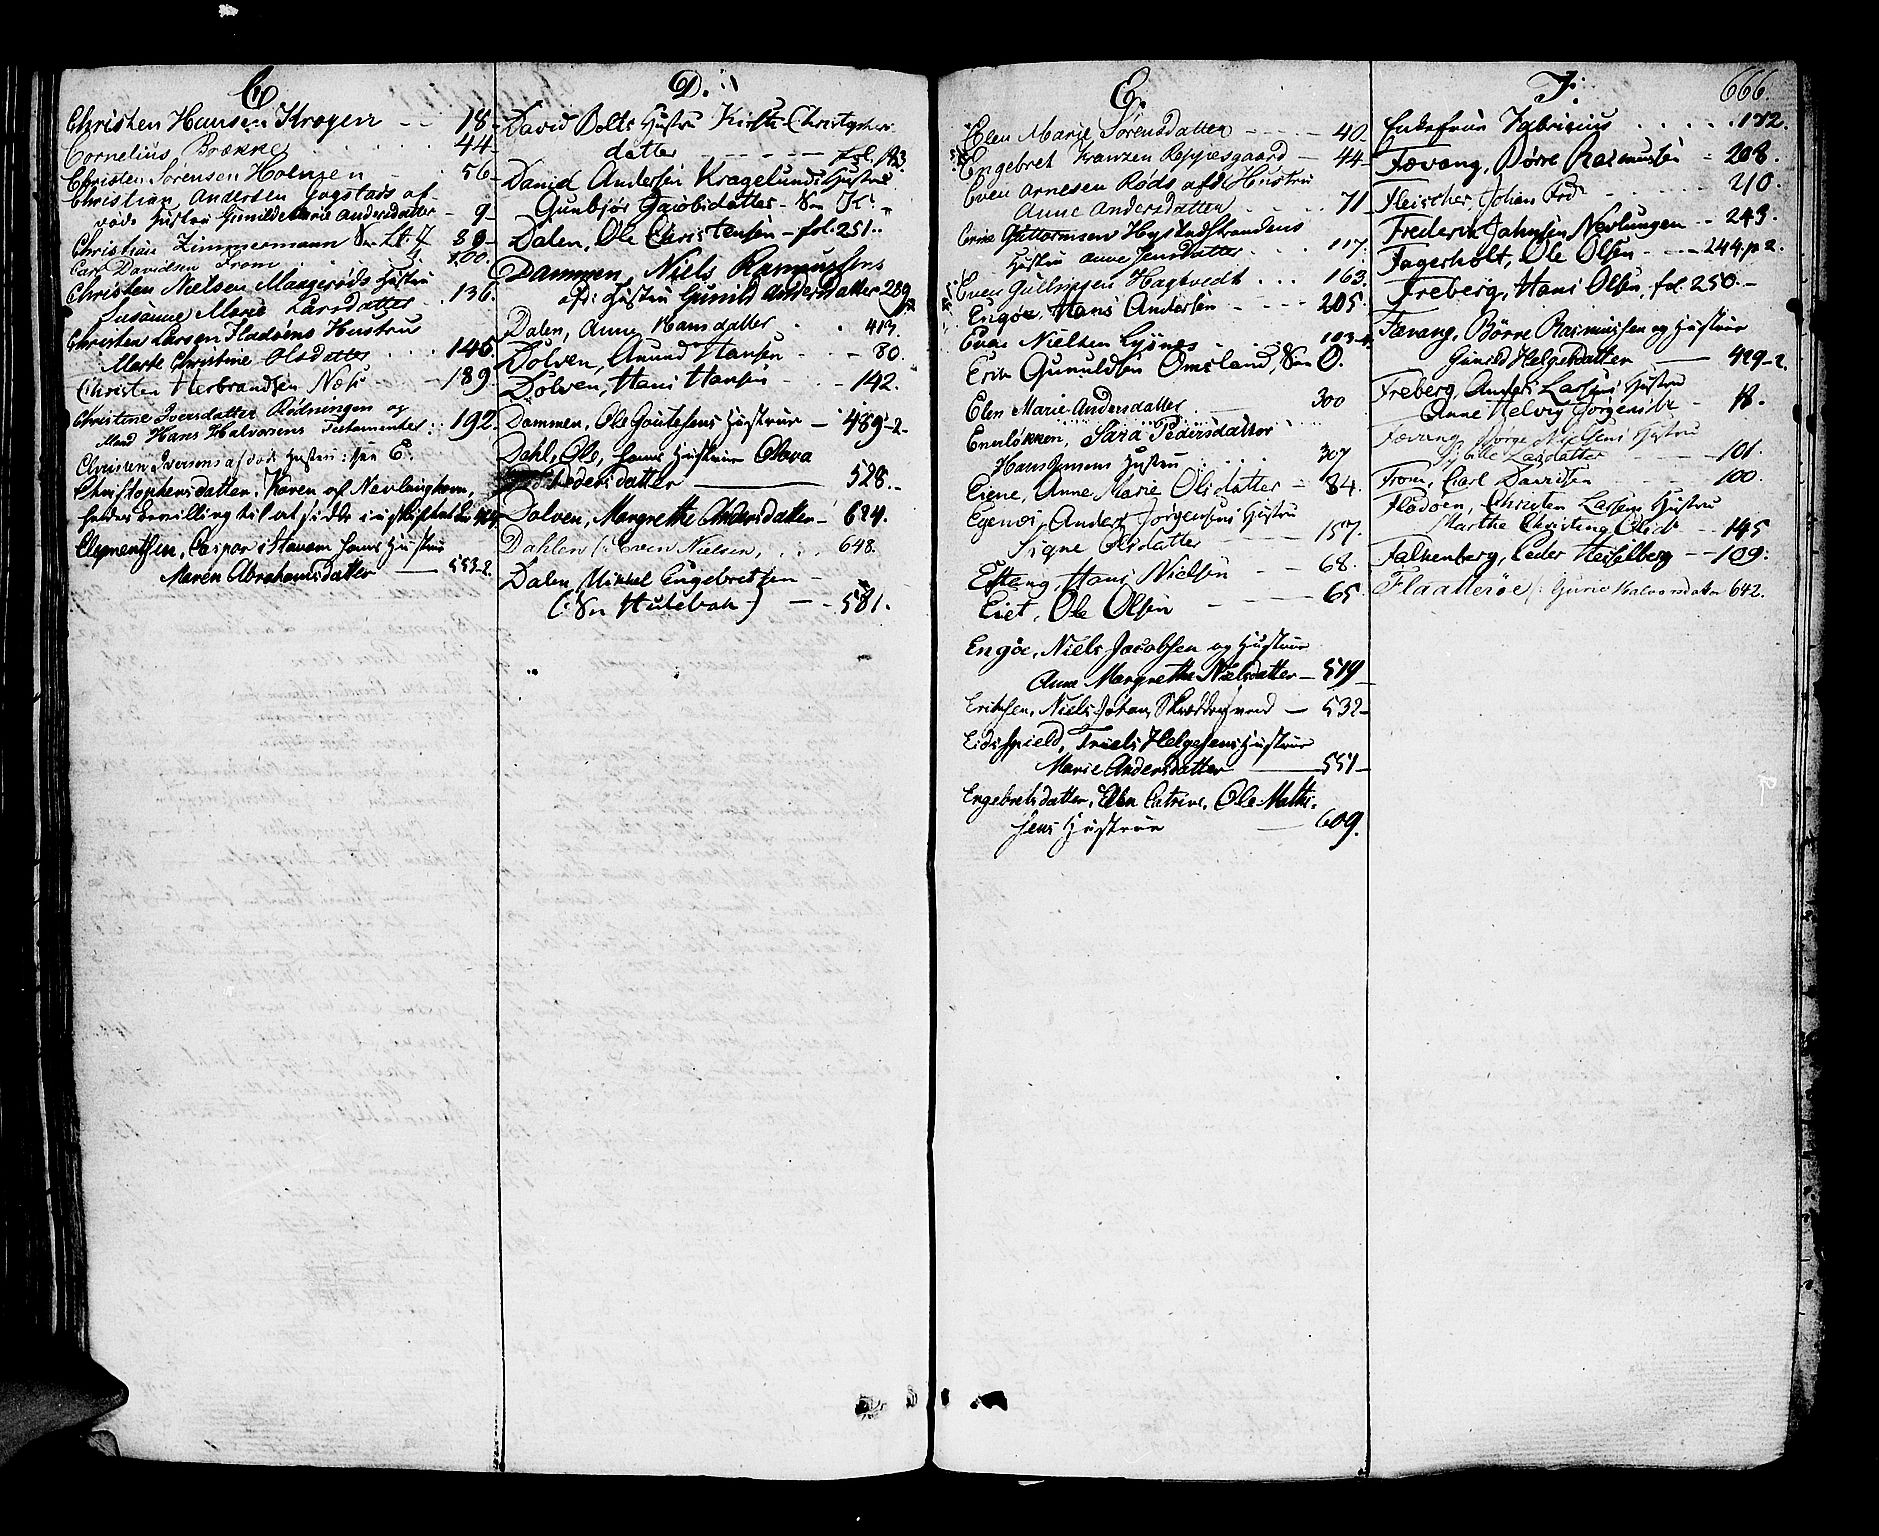 C.
Christen Hansen Krogen 18.
Cornelius Brække 44
Christen Sörensen Holmen 56
Christian Andersen Gogstads af
døde Hustru Gunilde Marie Andersdatter 9
Christian Zimmermann 80
Carl Davidsen From 100.
Christen Nielsen Maagerøds Hustru
Susanne Marie Larsdatter 136.
Christen Larsen Fladøens Hustru
Marte Christine Olsdatter 145.
Christen Herbrandsen Næss 189.
Christine Iversdatter Rødningen og
Mand Hans Halvorsens Testamente 192.
Christen Iversens afdøde Hustru: see E.
Christophersdatter, Karen af Nevlunghavn,
Clementsen, Caspar i Stavern hans Hustrue
Maren Abrahamsdatter 553-2.
D.
David Bolts Hustru Kirsti Christopher
datter fol. 183.
David Andersen Kragelunds Hustru
Gunbjør Jacobsdatter
Dalen, Ole Christensen - fol. 251.
Dammen, Niels Rasmussens
afd: Hustru Gunild Andersdatter 289
Dalen, Anne Hansdatter 413.
Dolven, Anund Hansen 80.
Dolven, Hans Hansen 142.
Dammen, Ole Gautesens Hustrue 489-2-
Dahl, Ole, hans Hustrue Olava
Pedersdatter 528.
Dolven, Margrethe Andersdatter 624.
Dahlen /: Even Nielsen, 648.
Dalen, Mikkel Engebretsen
(: Hulebak -) 581.
E.
Elen Marie Sørensdatter 40.
Engebret Franzen Roppesgaard 44
Even Arnesen Røds afd: Hustru
Anne Andersdatter 71
Guttormsen Hystadstrandens
Hustru Anne Jensdatter 117.
Even Gullingsen Hagtvedt 163.
Engøe, Hans Andersen 205.
Even Nielsen 103
Erik Gunuldsen Omsland, O.
Elen Marie Andersdatter 300
Enerløkken, Sara Pedersdatter
Hans Jensens Hustru 307
Eiene, Anne Marie Olsdatter 84.
Egenæs, Anders Jørgensens Hustru
Signe Olsdatter 157.
Eftang, Hans Nielsen 68.
Eiet, Ole Olsen 65
Engøe, Niels Jacobsen og Hustrue
Anne Margrethe Nielsdatter 519
Eriksen, Niels Johan, 532
Eidsfjeld, Truels Helgesens Hustrue
Marie Andersdatter 551
Engebretsdatter, Elen Catrine, Ole Mathi-
sens Hustrue 609.
F. 666.
Enkefrue Fabricius 172.
Fævang, Børre Rasmussen 208.
Fleischer, Johan 210.
Frederik Johnsen Nevlungen 243.
Fagerholt, Ole Olsen 244. p. 2.
Freberg, Hans Olsen, fol. 250.
Fævang, Børre Rasmussen og Hustrue
Gunild Helgesdatter 429-2.
Freberg, Anders Larsens Hustru
Anne Helvig Jørgensdr 18.
Fævang, Børge Nielsens Hustru
Larsdatter 101.
From, Carl Davidsen 100.
Fladøen, Christen Larsens Hustru
Marthe Christine Olsdr 145
Falkenberg, Peder Hesselberg 109.
Flaatterøe /: Gurie Halvorsdatter 642.